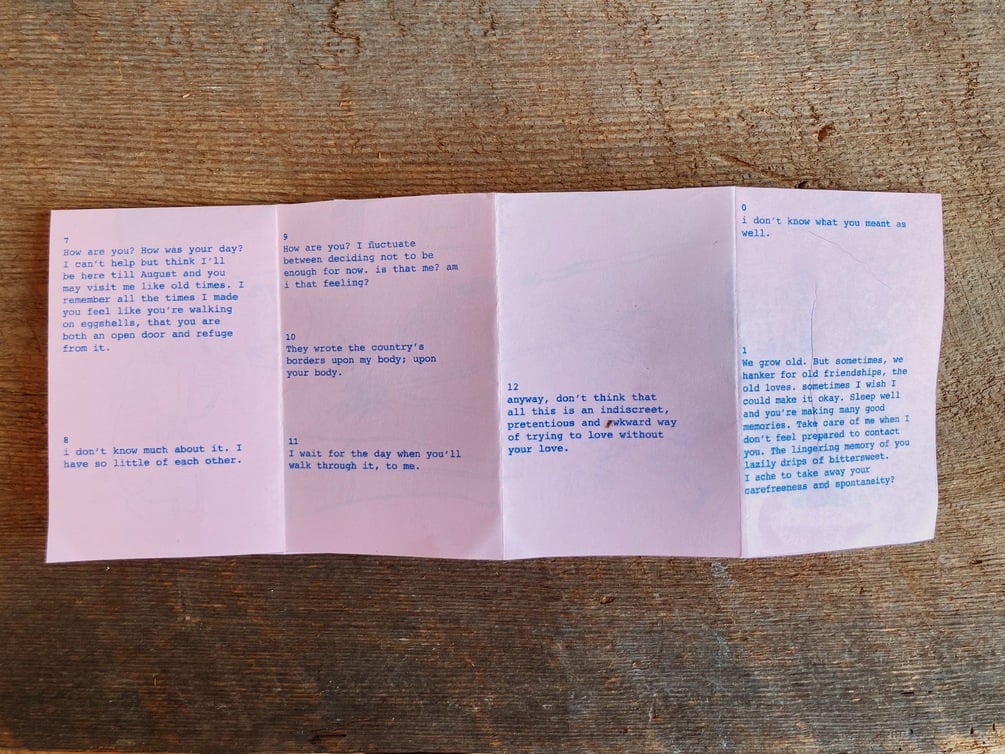 7
How are you? How was your day?
I can't help but think I'll
be here till August and you
may visit me like old times. I
remember all the times I made
you feel like you're walking
on eggshells, that you are
both an open door and refuge
from it.
8
i don't know much about it. I
have so little of each other.
9
How are you? I fluctuate
between deciding not to be
enough for now. is that me? am
i that feeling?
10
They wrote the country's
borders upon my body; upon
your body.
11
I wait for the day when you'll
walk through it, to me.
12
anyway, don't think that
all this is an indiscreet,
pretentious and awkward way
of trying to love without
your love.
0
i don't know what you meant as
well.
1
We grow old. But sometimes, we
hanker for old friendships, the
old loves. sometimes I wish I
could make it okay. Sleep well
and you're making many good
memories. Take care of me when I
don't feel prepared to contact
you. The lingering memory of you
lazily drips of bittersweet.
I ache to take away your
carefreeness and spontaneity?